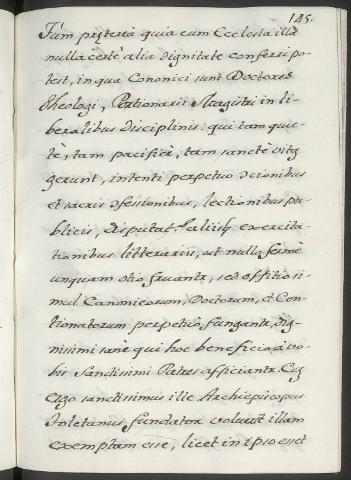 145.
Tùm prætereà quia cum Ecclesia illa
nulla certè alia dignitate conferri po-
test, in qua Canonici sunt Doctores
Theologi, Rationarii Magistri in li-
beralibus disciplinis: qui tam quie-
tè, tam pacificè, tam sanctè vitã
gerunt, intenti perpetuo
et sacris lectionibus pu-
blicis, disputat. aliisq exercita-
tionibus litterariis, ut nullo fermè
unquam otio fruantr, sed offitio si-
mul Canonicorum, Doctorum, et Con-
tionatorum perpetuò fungantr, dig-
nissimi sanè qui hoc beneficio à vo-
bis Sanctissimi Patres afficiantr. Cũ
ergo sanctissimus ille Archiepiscopus
Toletanus fundator voluerit illam
exemptam esse, licet in ipso esset